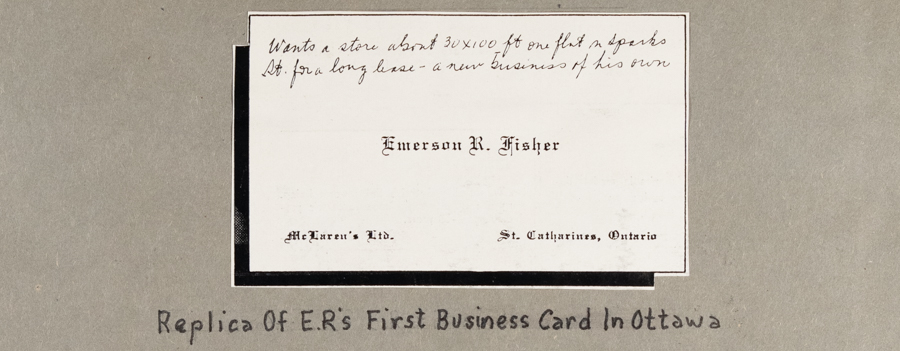 Wants a store about 30x100 ft one flat n Sparks
St. for a long lease - a new business of his own
Emerson R. Fisher
McLaren's Ltd. St. Catharines, Ontario
Replica Of E.R's First Business Card In Ottawa